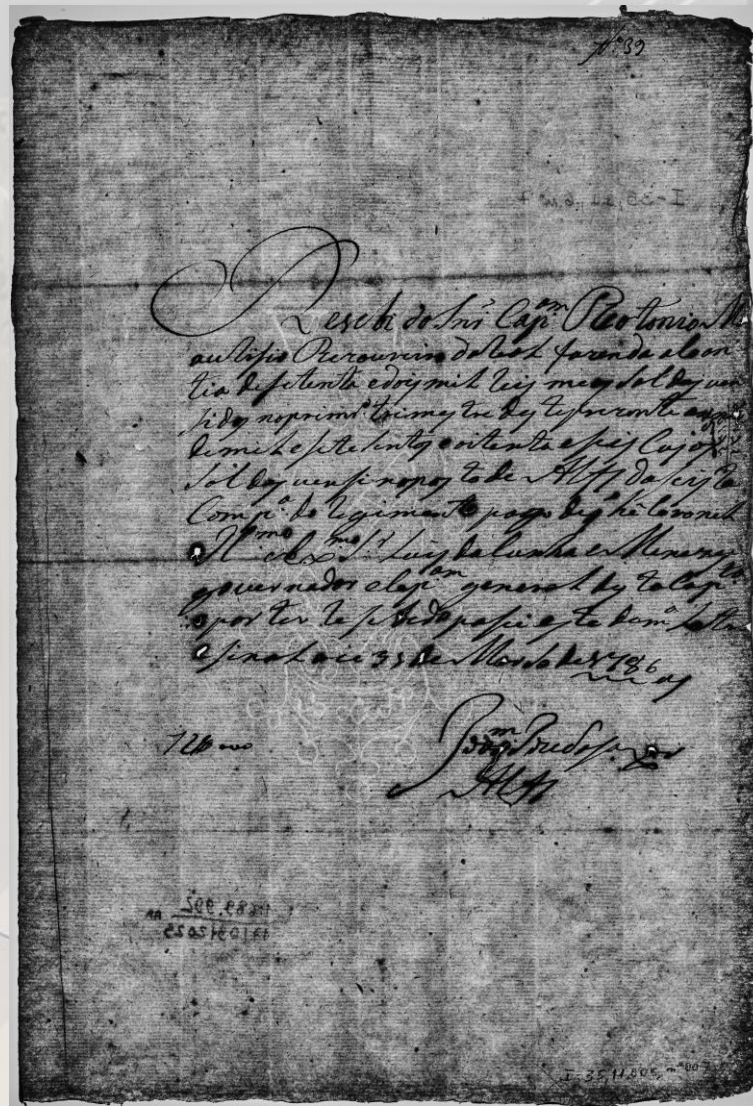 Nº 39
Resebi do Snr Cap.am Antonio M
Tezoureiro da Real fazenda a coan
tia de setenta e dois mil reis meos soldos ven
sidos no primr.o trimestre deste prezente
de mil e sete sentos e oitenta e seis Cujos
soldos vensi no posto de Alfs da seista
Comp.a do regimento pago de q he Coronel
o Il.mo e Ex.mo Sr Luis da Cunha e Menezes
governador e Cap.am general desta Cap
e por ter resebido pasei este da m.a Letra
e sinal oie 31 de Marso de 1786
72
Alfs
I-35,11,005, nº007